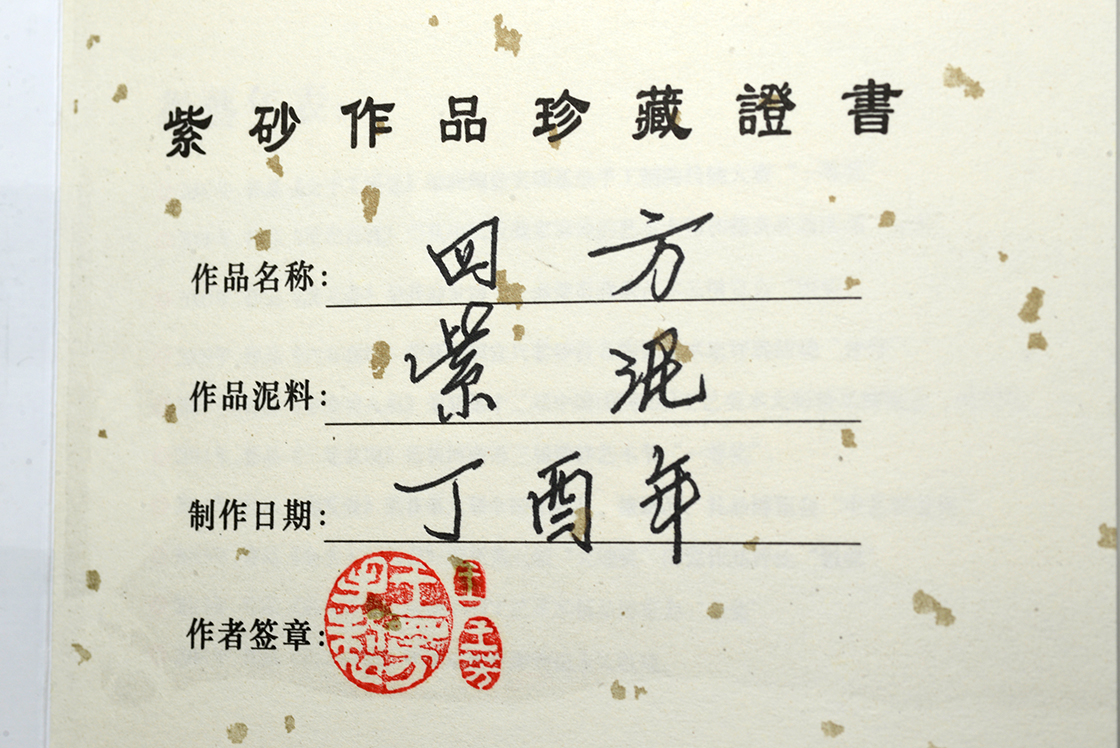 紫砂作品珍藏證書
作品名称：四方
作品泥料：紫泥
制作日期：丁酉年
作者签章：